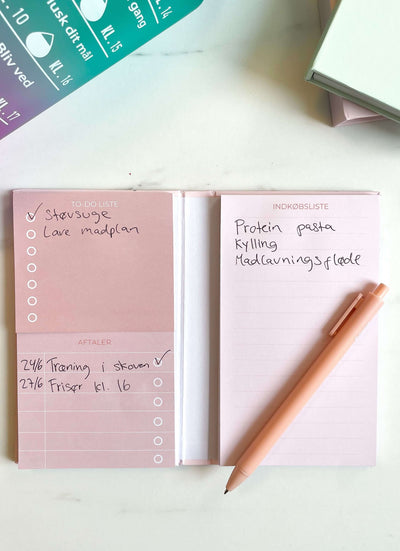 KL. 14
gang
KL. 15
Husk dit mål
KL. 16
Bliv ved
KL. 17
TO-DO LISTE
Støvsuge
Lave madplan
AFTALER
24/6 Træning i skoven
27/6 Frisør kl. 16
INDKØBSLISTE
Protein pasta
Kylling
Madlavningsfløde